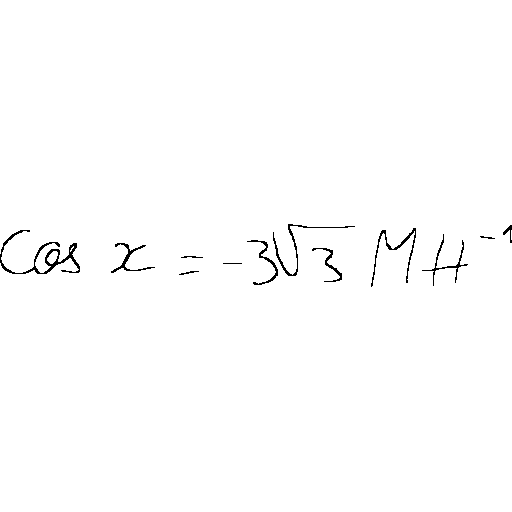 cos x = -3√3 MH⁻¹